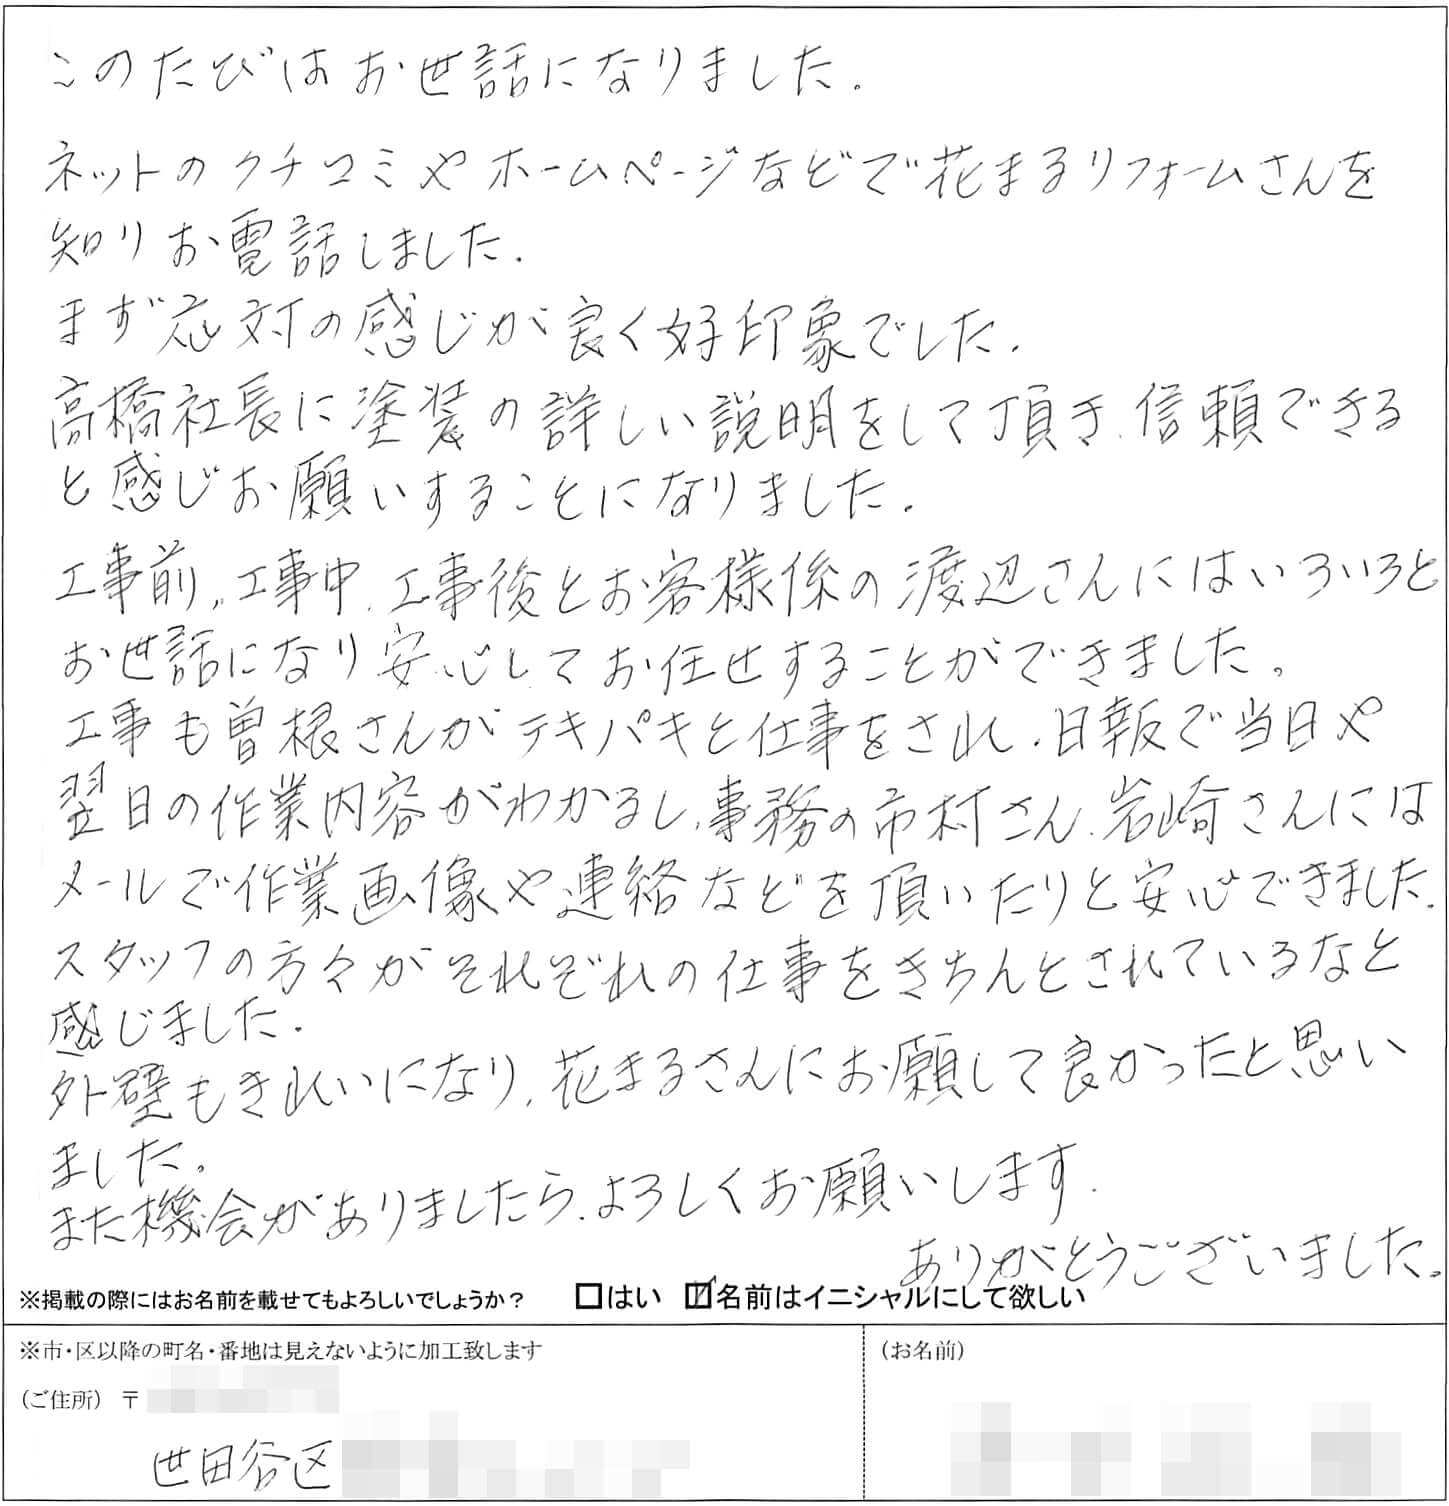 このたびはお世話になりました.
ネットのクチコミやホームページなどで花まるリフォームさんを
知りお電話しました.
まず応対の感じが良く好印象でした.
高橋社長に塗装の詳しい説明をして頂き、信頼できる
と感じお願いすることになりました.
工事前、工事中、工事後とお客様係の渡辺さんにはいろいろと
お世話になり安心してお任せすることができました。
工事も曽根さんがテキパキと仕事をされ、日報で当日や
翌日の作業内容がわかるし、事務の市村さん、岩崎さんには
メールで作業画像や連絡などを頂いたりと安心できました.
スタッフの方々がそれぞれの仕事をきちんとされているなと
感じました.
外壁もきれいになり、花まるさんにお願して良かったと思い
ました。
また機会がありましたら、よろしくお願いします.
ありがとうございました。
※掲載の際にはお名前を載せてもよろしいでしょうか? □はい ☑名前はイニシャルにして欲しい
※市・区以降の町名・番地は見えないように加工致します
(お名前)
(ご住所) 〒
世田谷区